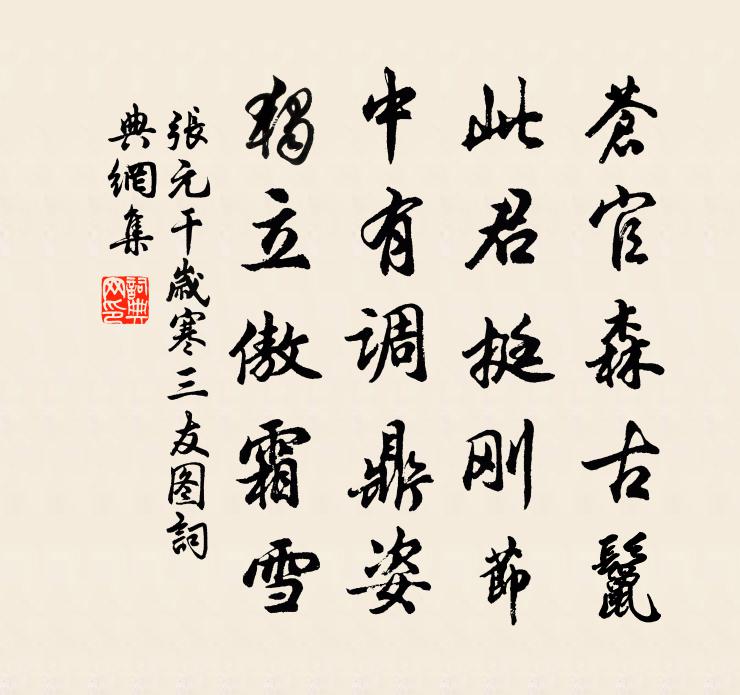 蒼官森古鬣
此君挺刚節
中有调鼎姿
獨立傲霜雪
張元干歲寒三友图詞
典網集
詞典
网印